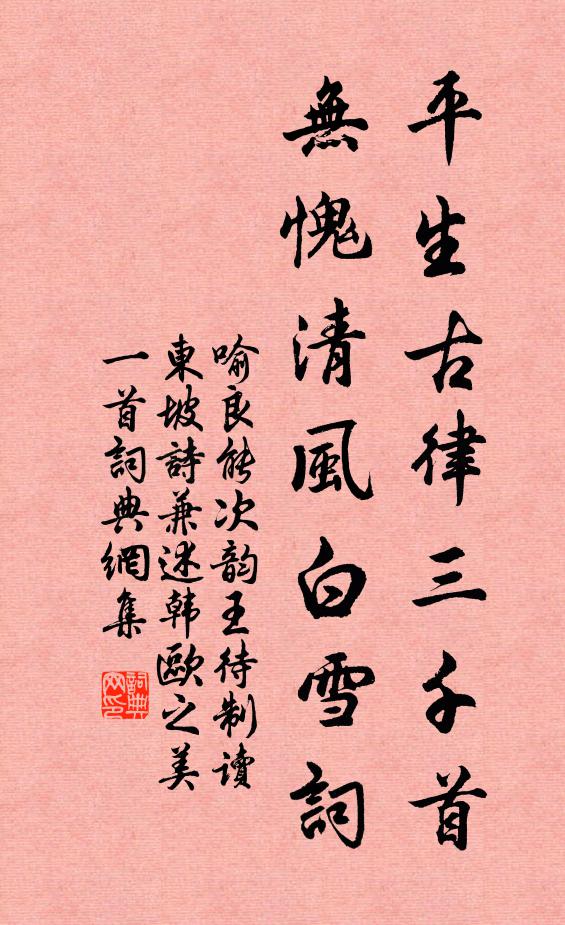 平生古律三千首
無愧清風白雪詞
喻良能次韵王待制讀
東坡詩兼述韩歐之美
一首詞典網集
詞典
网印